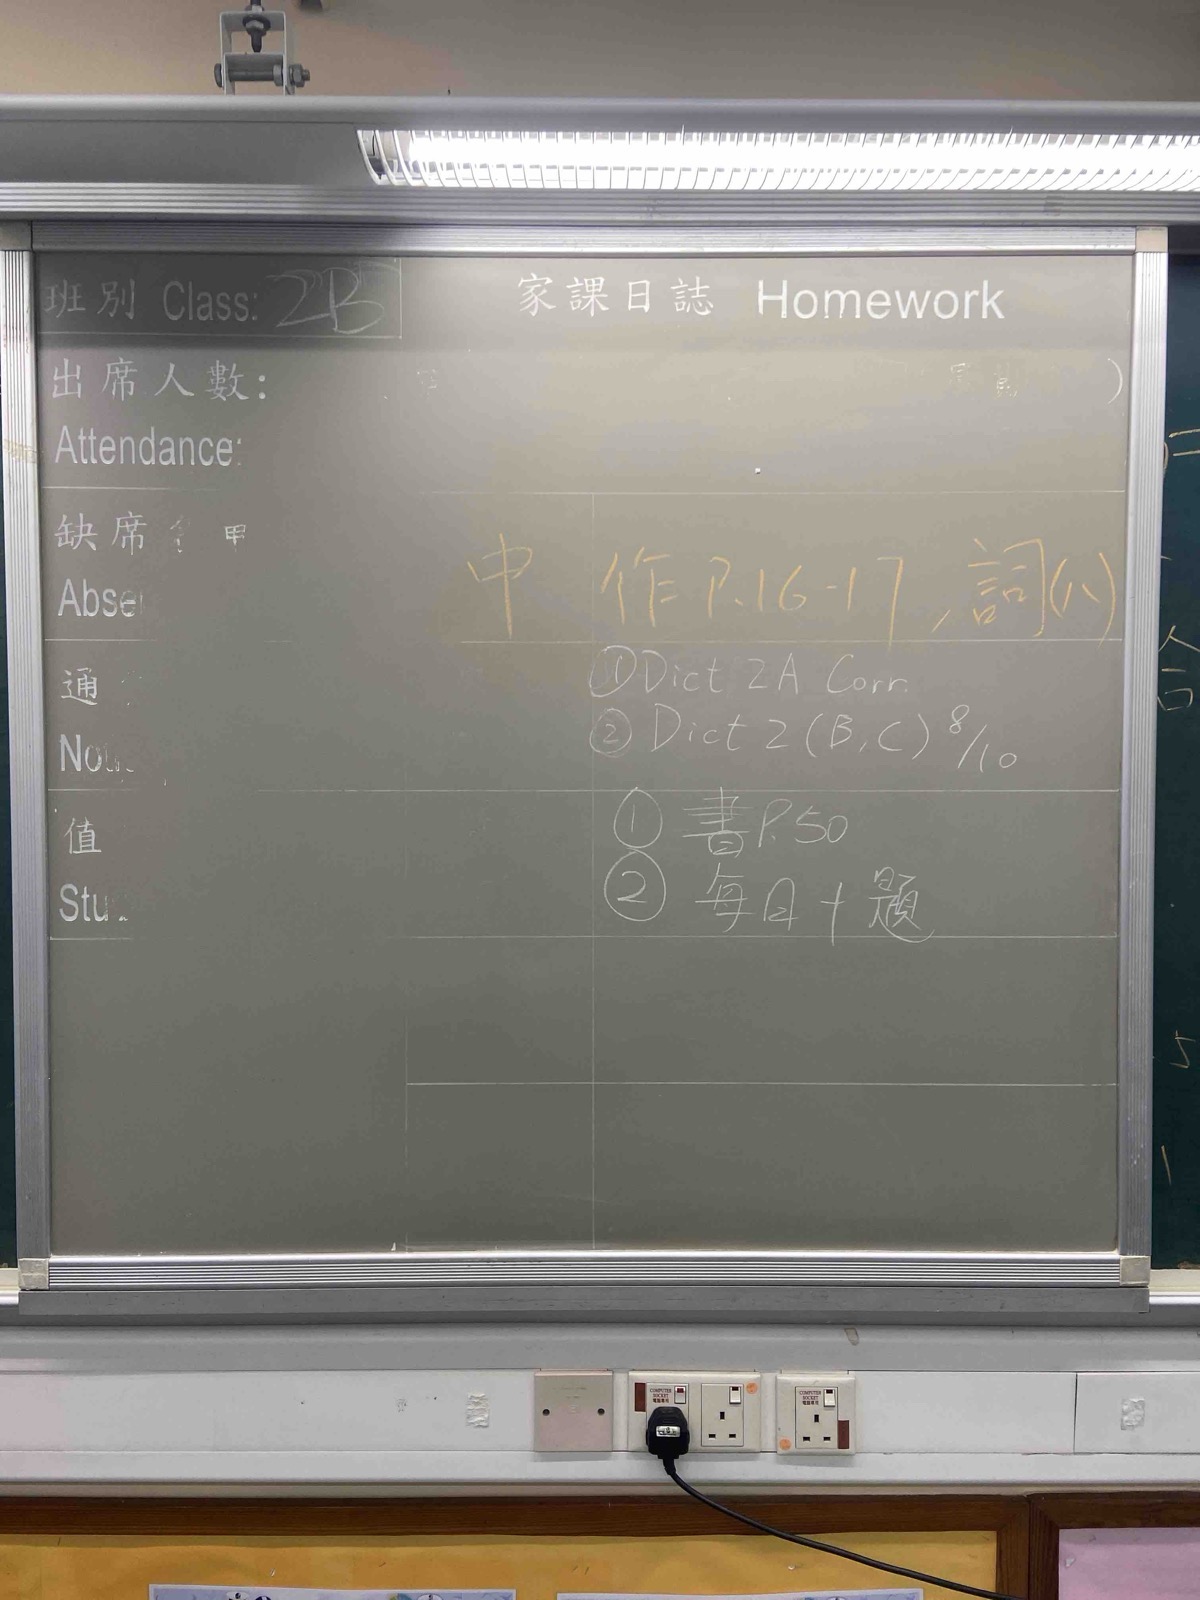 班別 Class: 2B
家課日誌 Homework
出席人數:
Attendance:
缺席
Abse
中 作 P.16-17, 詞(八)
通
① Dict 2A Corr.
② Dict 2 (B, C) 8/10
值
① 書 P.50
Stu
② 每日十題
COMPUTER SOCKET 電腦專用
COMPUTER SOCKET 電腦專用